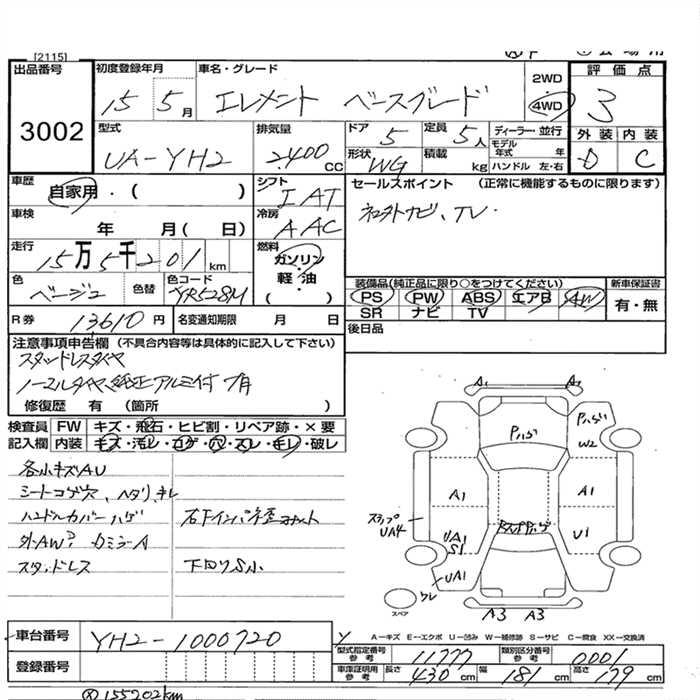 [2115]
出品番号 初度登録年月 車名・グレード 2WD 評価点
3002 15 5月 エレメント ベースグレード 4WD 3
型式 排気量 ドア 定員 ディーラー・並行 外装 内装
UA-YH2 2,400CC 5 5人 モデル年式 年 D C
形状 WG 積載 kg ハンドル 左・右
車歴 自家用・( ) シフト IAT セールスポイント (正常に機能するものに限ります)
車検 年 月( 日) 冷房 AAC ナビ、TV
走行 15万5千201km 燃料 ガソリン・軽油 ( )
色 ベージュ 色替 色コード YR528M
装備品(純正品に限り○をつけてください) 新車保証書
PS PW ABS エアB AW 有・無
SR ナビ TV
R券 13610円 名変通知期限 月 日 後日品
注意事項申告欄 (不具合内容等は具体的に記入して下さい)
スタッドレスタイヤ
ノーマルタイヤ、純正アルミ付
修復歴 有 (箇所 )
検査員 FW キズ・飛石・ヒビ割・リペア跡・×要
記入欄 内装 キズ・汚レ・コゲ・穴・スレ・モレ・破レ
各小キズAU
シートコゲ穴、ヘタリ、キレ
ハンドルカバーハゲ
外AW
スタッドレス 下回りS小
A1 A1
Pハゲ Pハゲ
W2
A1 A1
ステップ
UA4
UA1
S1
U1
UA1
スペア
A3 A3
A－キズ E－エクボ U－凹み W－補修跡 S－サビ C－腐食 XX－交換済
車台番号 YH2-1000720 型式指定番号 参考 11777 類別区分番号 参考 0001
登録番号 車庫証明用 参考 長さ 430cm 幅 181cm 高さ 179cm
155202km